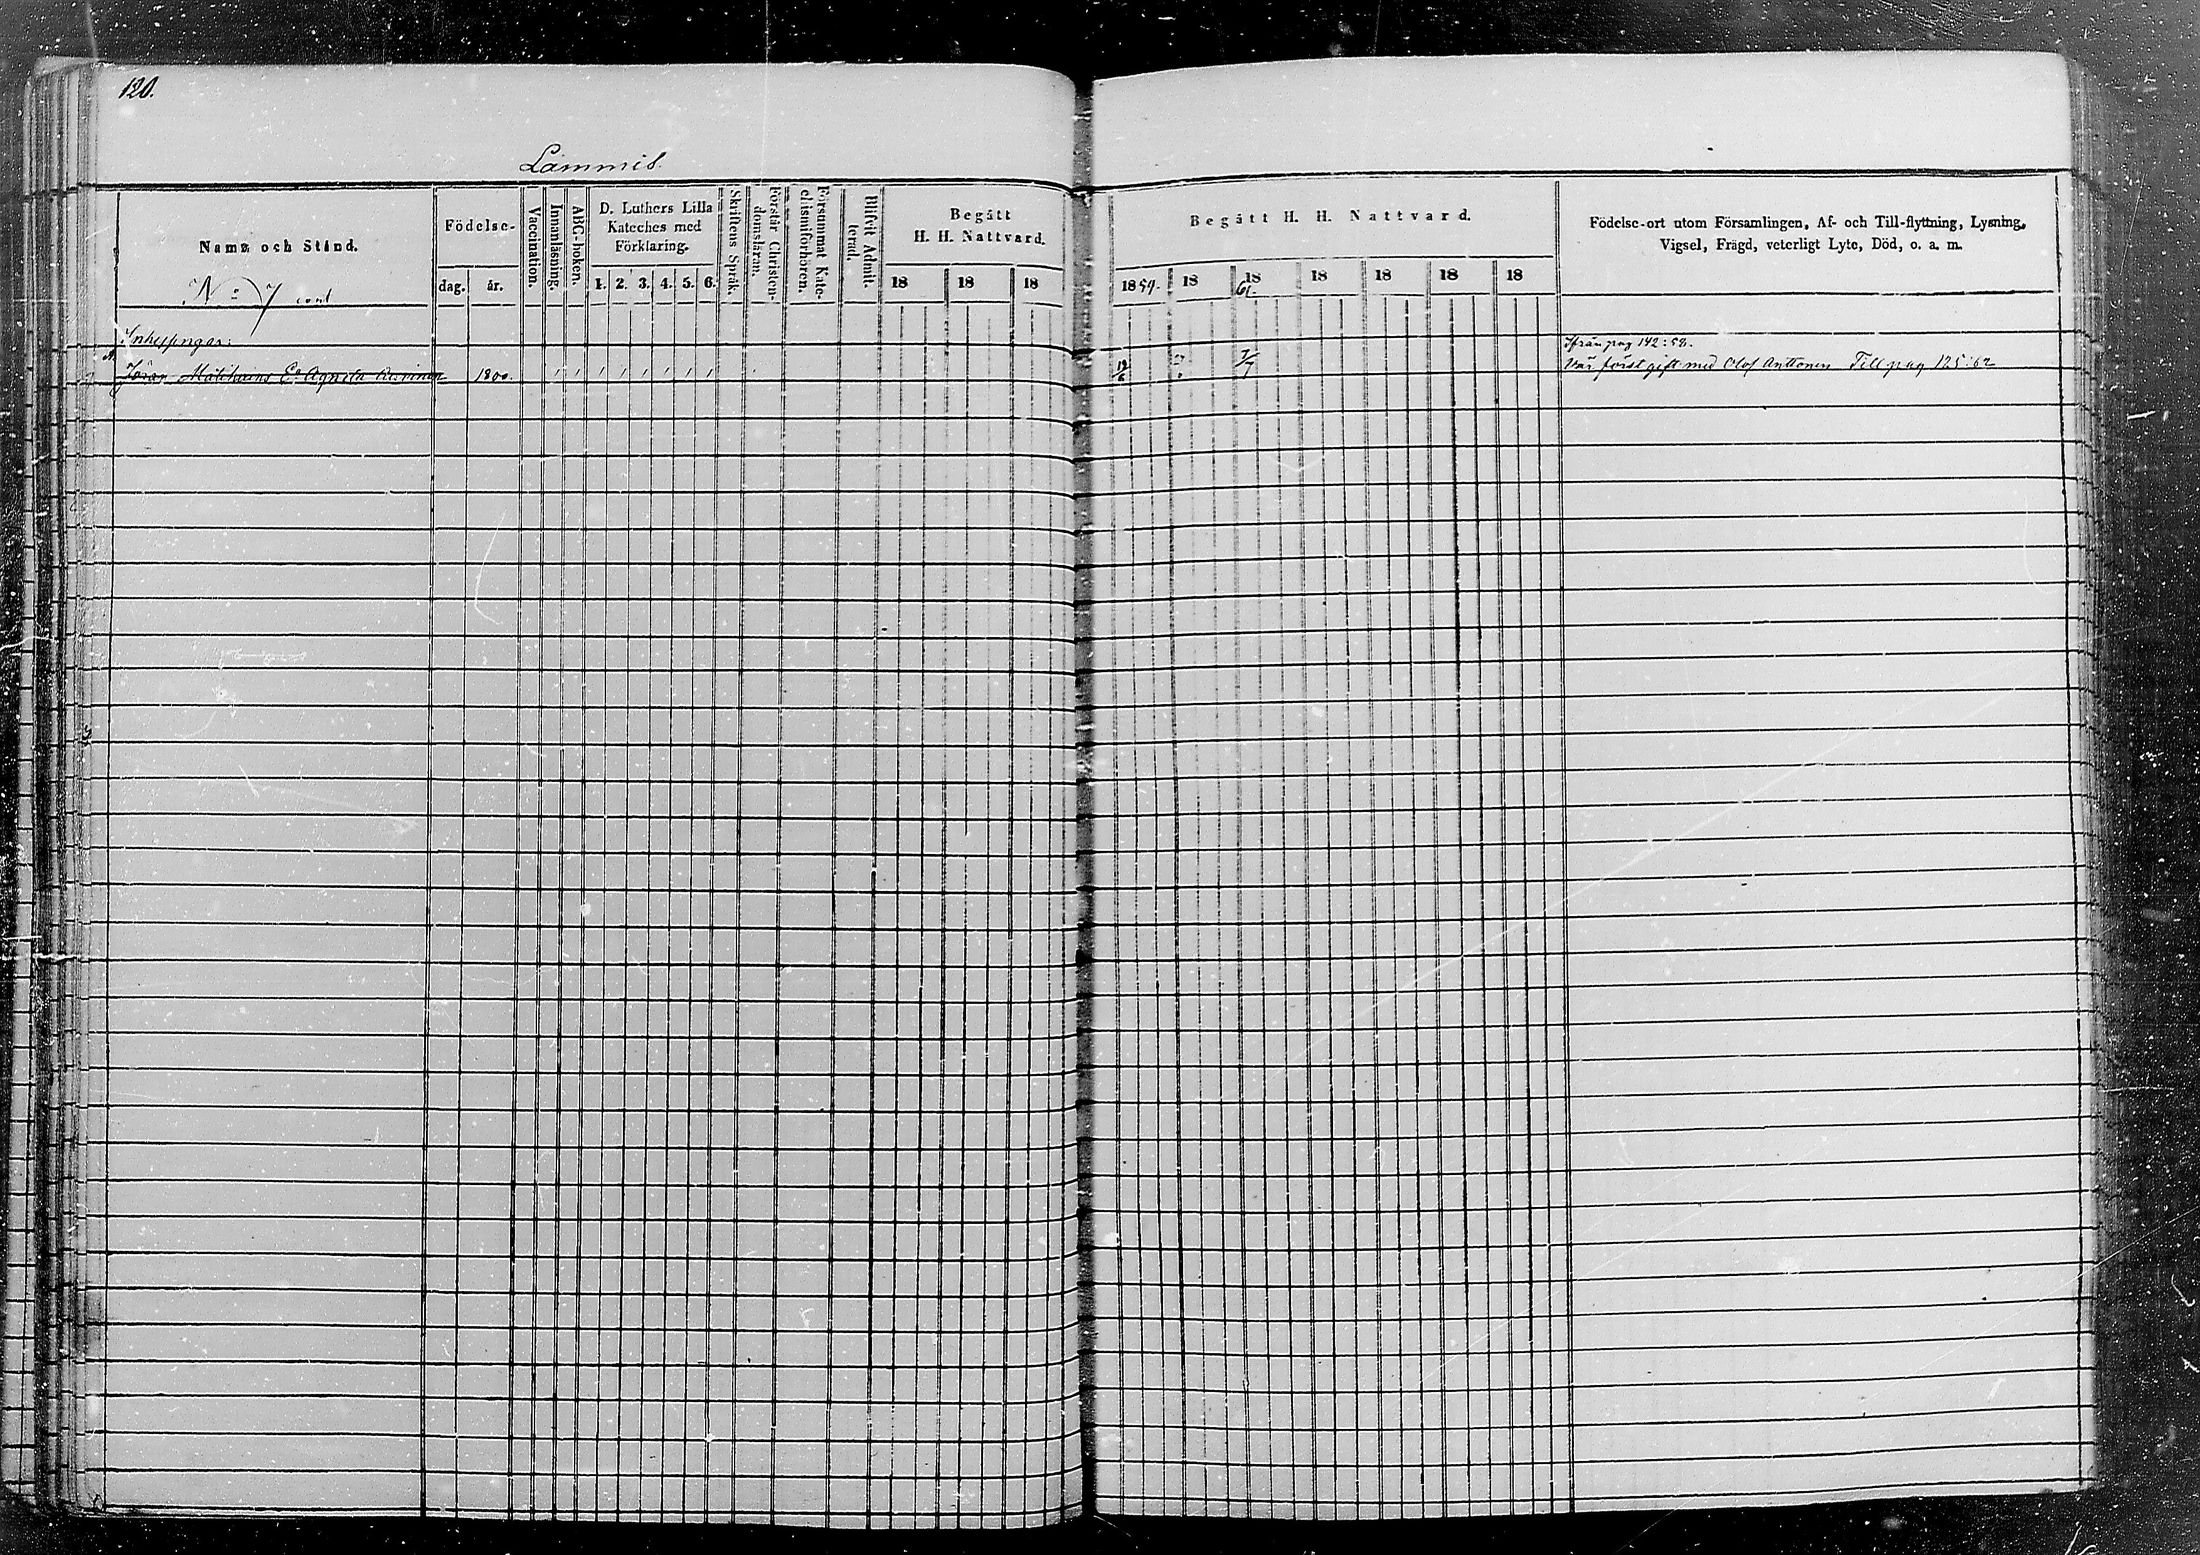 120.
Lammis.
Namn och Stånd.
Födelse-
dag. år.
Vaccination.
Innanläsning.
ABC-boken.
D. Luthers Lilla
Kateches med
Förklaring.
1. 2. 3. 4. 5. 6.
Skriftens Språk.
Förstår Christen-
domsläran.
Försummat Kate-
chismiförhören.
Blifvit Admit-
terad.
Begått
H. H. Nattvard.
18 18 18
Begått H. H. Nattvard.
1859. 18 18 61. 18 18 18 18
Födelse-ort utom Församlingen, Af- och Till-flyttning, Lysning,
Vigsel, Frägd, veterligt Lyte, Död, o. a. m.
No 7 cont
Inhysingar:
Ifrån pag 142:58.
Göran Matikains Ea Agneta 1800.
Var först gift med Olof Anttonen Till pag 125:62